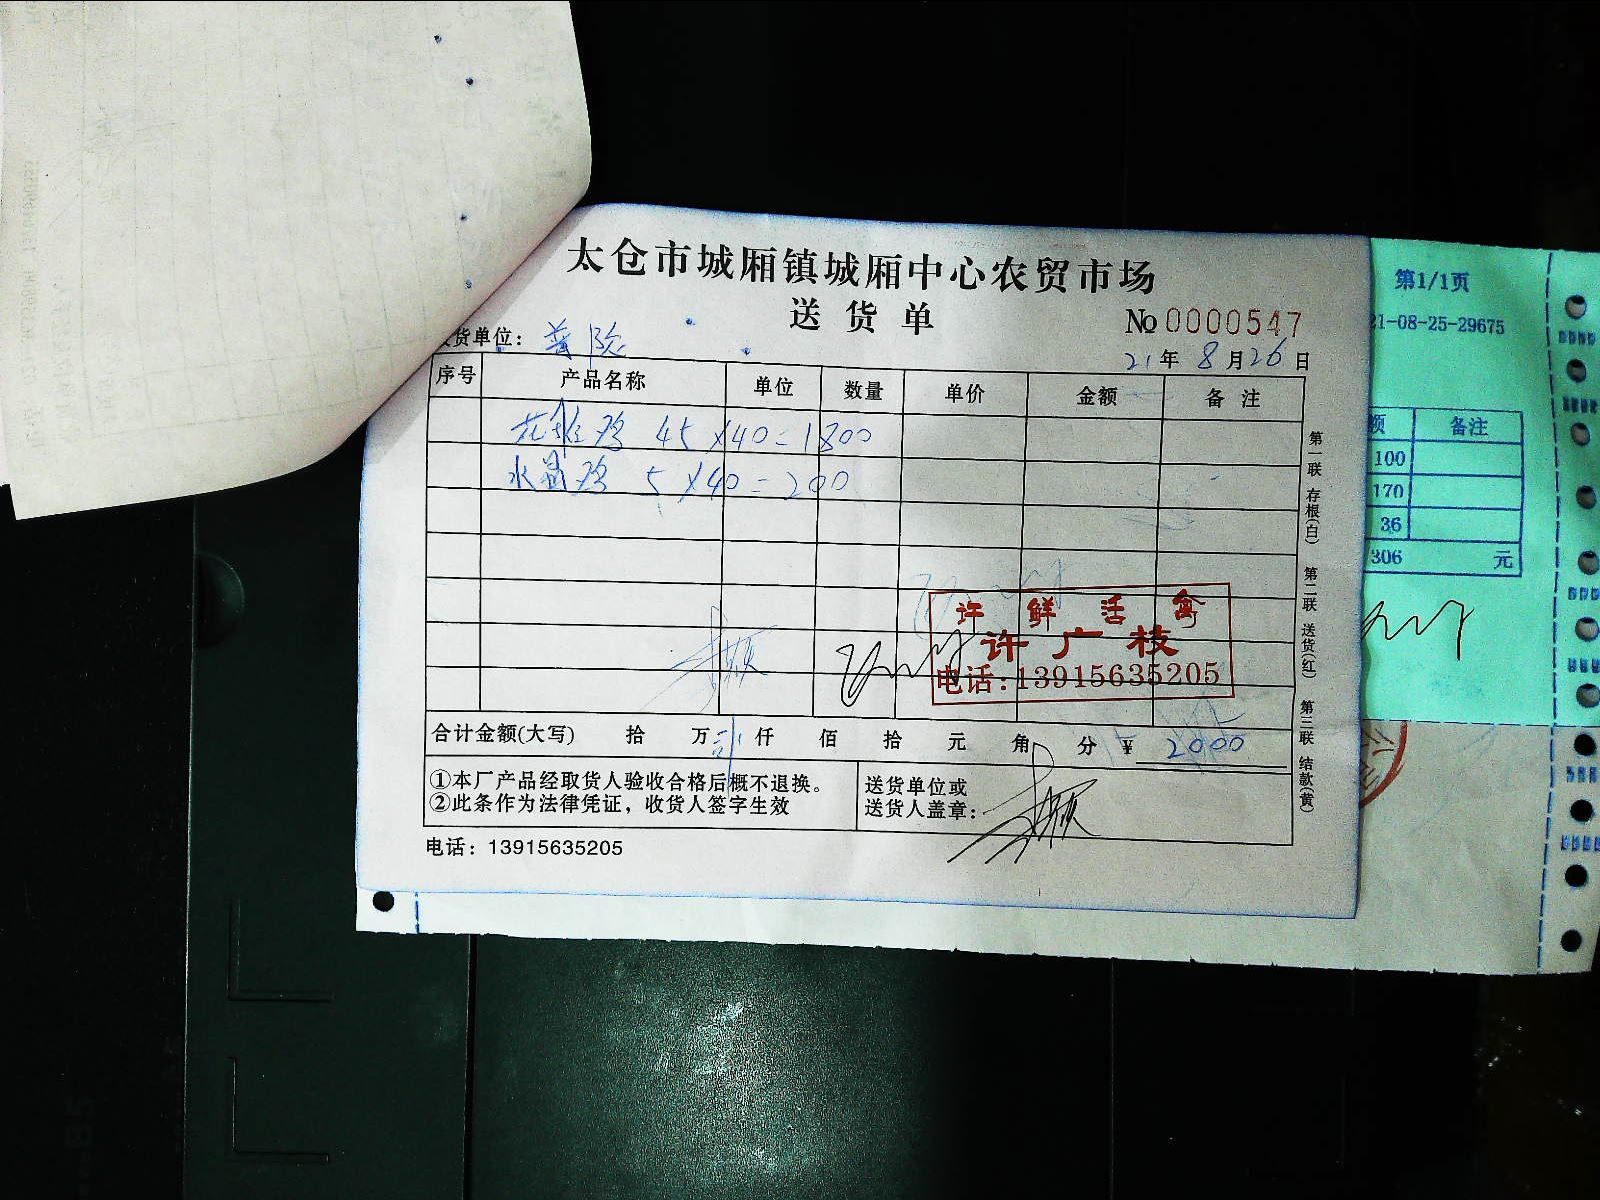 太仓市城厢镇城厢中心农贸市场
送货单
No 0000547
货单位：普陀
21年8月26日
序号 产品名称 单位 数量 单价 金额 备注
花桂鸡 45×40=1800
水晶鸡 5×40=200
许鲜活禽
许广枝
电话:13915635205
合计金额(大写) 拾 万 仟 佰 拾 元 角 分 ¥ 2000
①本厂产品经取货人验收合格后概不退换。
②此条作为法律凭证，收货人签字生效
送货单位或
送货人盖章：
电话：13915635205
第一联 存根(白) 第二联 送货(红) 第三联 结款(黄)
第1/1页
21-08-25-29675
额 备注
100
170
36
306 元